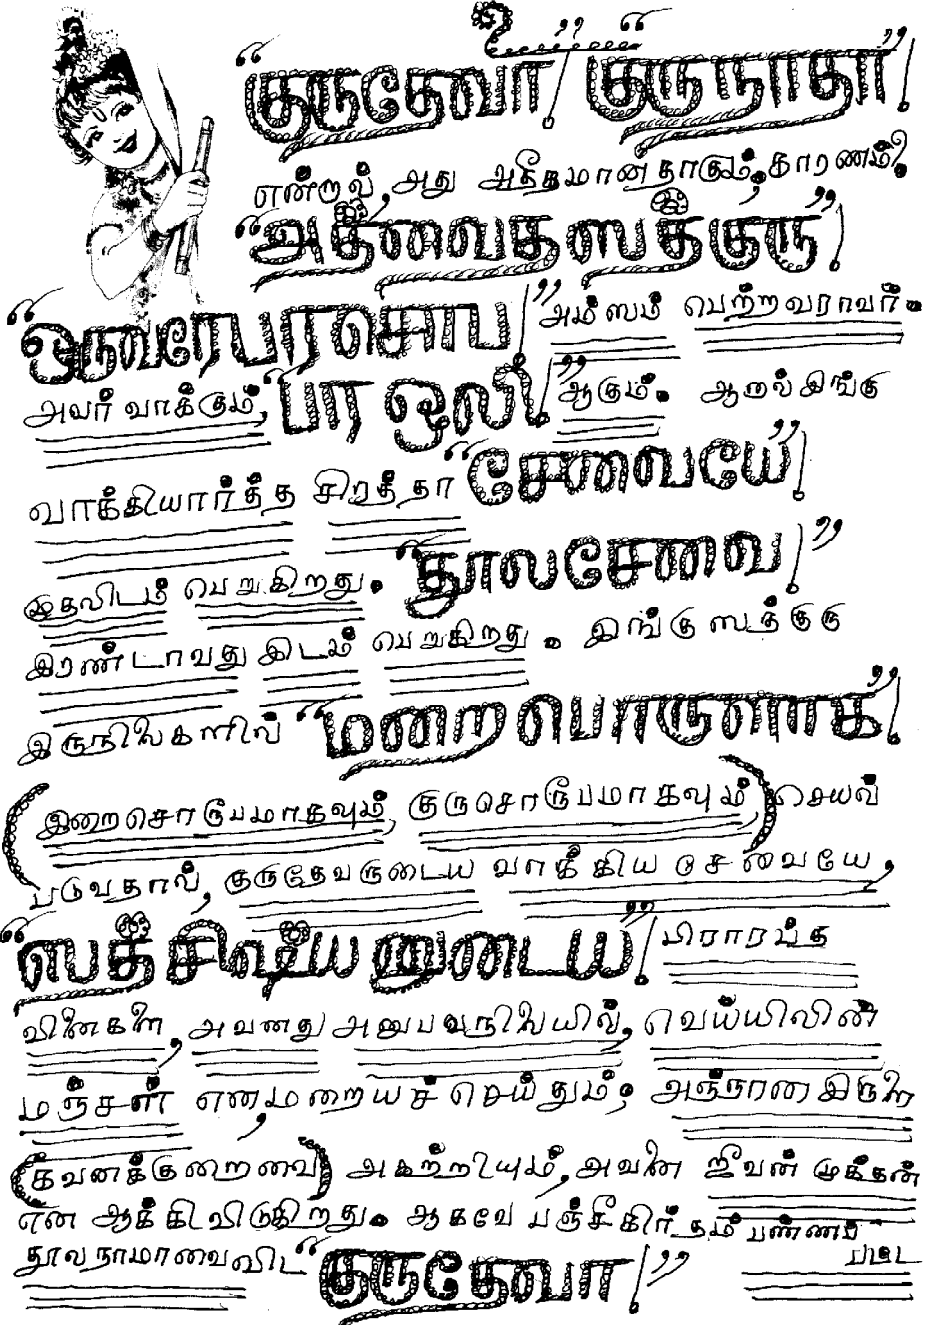 “குருதேவா!” “குருநாதா!”
என்றால், அது அதீதமானதாகும். காரணம்?
“அத்வைத ஸத்குரு”!
“ஒருவரே பரசொப!” அம்ஸம் பெற்றவராவர்.
அவர் வாக்கும், “பர ஒலி!” ஆகும். ஆனால் இங்கு
வாக்கியார்த்த சிறத்தா “சேவையே!”
முதலிடம் பெறுகிறது. “தூலசேவை!”
இரண்டாவது இடம் பெறுகிறது. இங்கு ஸத்குரு
இருநிலைகளில் “மறைபொருளாக!”
(இறைசொரூபமாகவும், குருசொரூபமாகவும்) செயல்
படுவதால், குருதேவருடைய வாக்கிய சேவையே,
“ஸத் சிஷ்யனுடைய!” பிராரப்த
வினைகளை, அவனது அனுபவநிலையில், வெய்யிலின்
மஞ்சள் என, மறையச் செய்தும்; அஞ்ஞான இருளை
(கவனக்குறைவை) அகற்றியும், அவனை ஜீவன் முக்தன்
என ஆக்கிவிடுகிறது. ஆகவே பஞ்சீகிர்தம் பண்ணப்
பட்ட
தூலநாமாவைவிட “குருதேவா!”